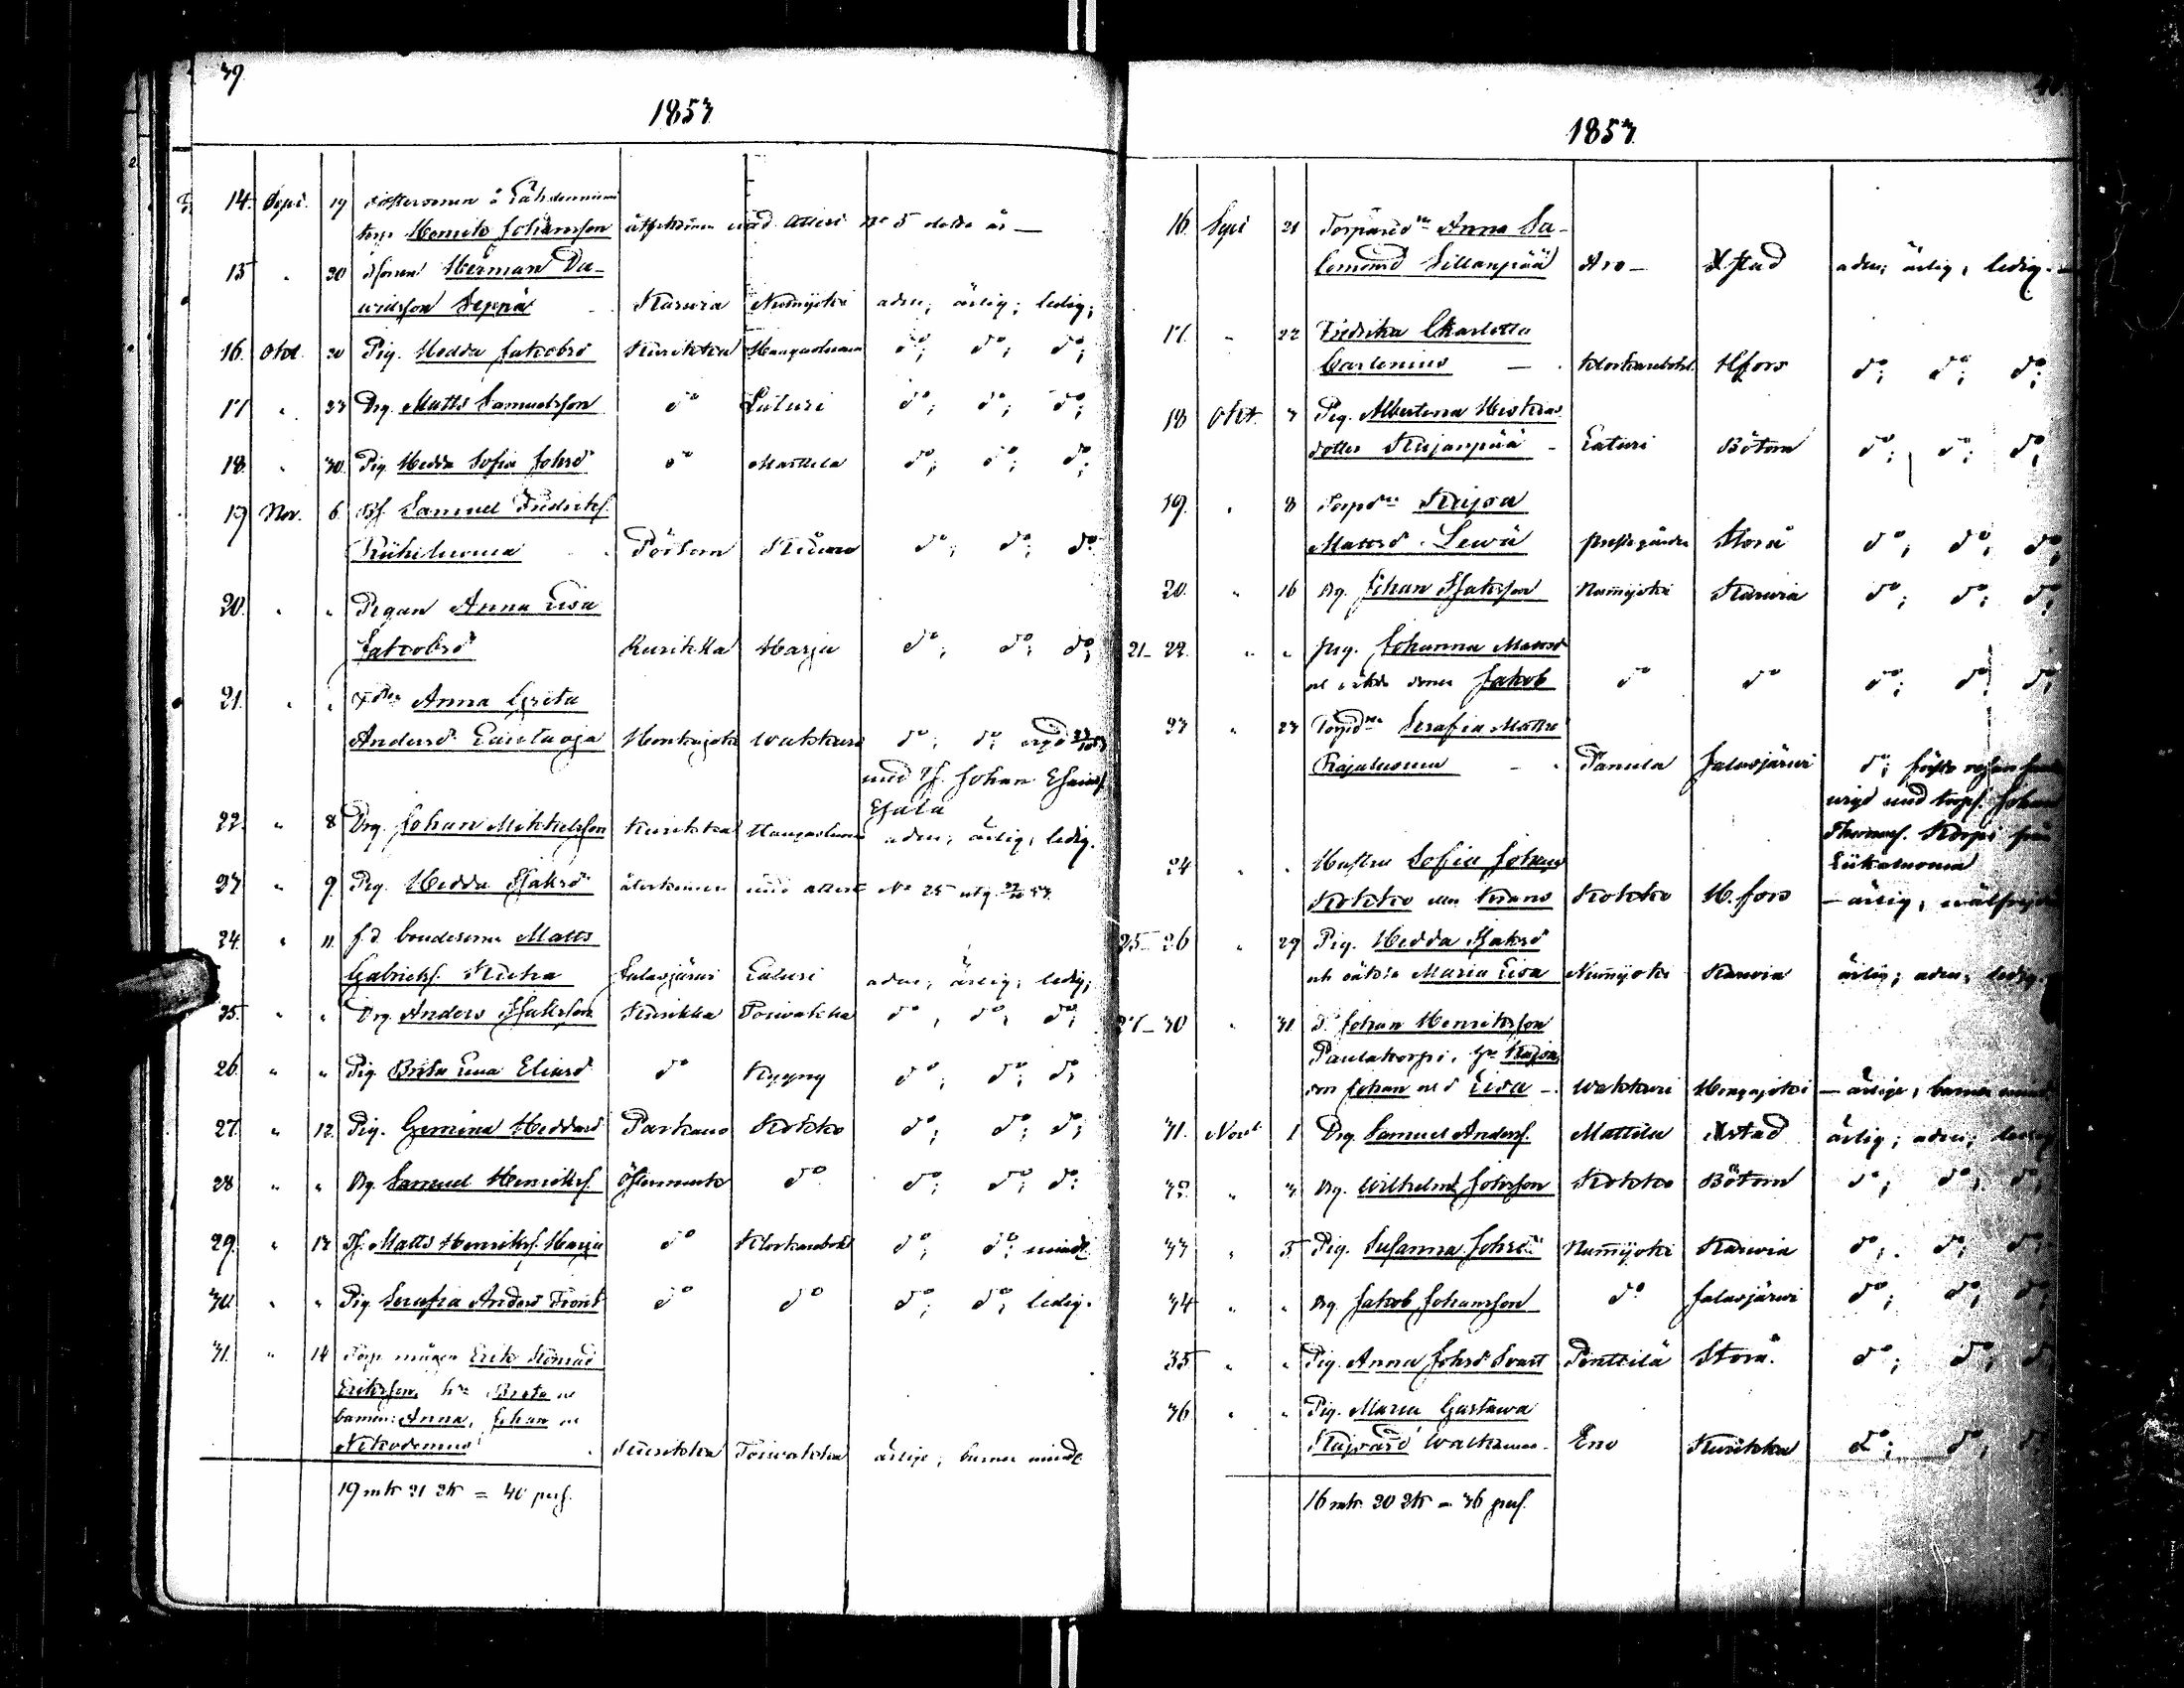 39
1853
14. Sept. 19
torp. Henrik Johansson återkommen med attest No 5 detta år —
15 " 30 Herman Da-
widsson Seppä Karvia Nummijoki admr; ärlig; ledig;
16. Okt. 20 Pig. Hedda Jakobsd Kurikka Hangasluoma do; do; do;
17 " 23 Drg. Matts Samuelsson do Luturi do; do; do;
18. " 30. Pig. Hedda Sofia Johsd do Mattila do; do; do;
19 Nov. 6. Bf. Samuel Fredriksf.
Riihiluoma Pörtom Kauro do; do; do
20. " " Pigan Anna Lisa
Jakobsd Kurikka Harju do; do; do;
21. " " Anna Greta
Andersd Honkajoki Wakkuri do; do;
med Johan Esaiasf.
Esala
22. " 8 Drg. Johan Mikkelsson Kurikka Hangasluoma admr; ärlig; ledig.
23 " 9. Pig. Hedda Isaksd återkommen med attest No 25 utg. 53.
24. " 11. f.d. bondesonen Matts
Gabrielsf. Kuha Jalasjärvi Luturi admr; ärlig; ledig;
25. " " Drg. Anders Isaksson Kurikka Toivakka do, do; do;
26. " " Pig. Brita Lena Eliasd do Kyyny do; do; do;
27. " 12. Pig. Gemina Heddasd Parkano Kokko do; do; do;
28 " " Drg. Samuel Henriksf. Östermark do do; do; do;
29. " 13. Tf. Matts Henriksf. Harju do Klockarebol do; do; mindr.
30. " " Pig. Serafia Andersd Front do do do; do; ledig.
31. " 14 Torp. mågen Erik Konrad
Eriksson, hu Brita o
barnen: Anna, Johan o
Nikodemus Kurikka Toivakka ärlige; barnen mindr.
19 mk 21 qk = 40 pers.
1853.
16. Sept 21 Torparedr Anna Sa-
lomonsd Sillanpää Aro — Kstad admr; ärlig; ledig. —
17. " 22 Fredrika Charlotta
Carlenius — Klockarebol. Hfors do; do; do;
18 Okt. 3 Pig. Albertina Heikias
dotter Kujanpää — Luturi Bötom do; do; do;
19. " 8 Torpdr Kajsa
Mattsd. Lewä Prestgården Storå do; do; do;
20. " 16 Drg. Johan Isaksson Nummijoki Karvia do; do; do;
21–22. " " Pig. Johanna Mattsd
o oäkta sonen Jakob do do do; do; do;
23 " 23 Torpdr Serafia Mattsd
Rajaluoma — Panula Jalasjärvi do;
wigd med torpf. Johan
Thomasf. Korpi från
Liikaluoma
24 " " Hustru Sofia Johansd
Kokko Kokko H.fors — ärlig, wälfrejdad
25–26 " 29 Pig. Hedda Isaksd
och oäkta Maria Lisa Nummijoki Karvia ärlig; admr; ledig.
27–30 " 31. Johan Henriksson
Paulakorpi, hu Kajsa,
son Johan o d Lisa —. Wakkuri Honkajoki — ärlige; barnen mindr.
31. Novr 1 Drg. Samuel Andersf. Mattila Kstad ärlig; admr; ledig
32. " 3 Drg. Wilhelm Johsson Kokko Bötom do; do; do;
33 " 5 Pig. Susanna Johsd Nummijoki Karvia do; do; do;
34 " " Drg. Jakob Johansson do Jalasjärvi do; do; do;
35 " " Pig. Anna Johsd Svart Penttilä Storå. do; do; do
36 " " Pig. Maria Gustawa
Kajsasd Eno Kurikka do; do;
16 mk. 20 qk = 36 pers.